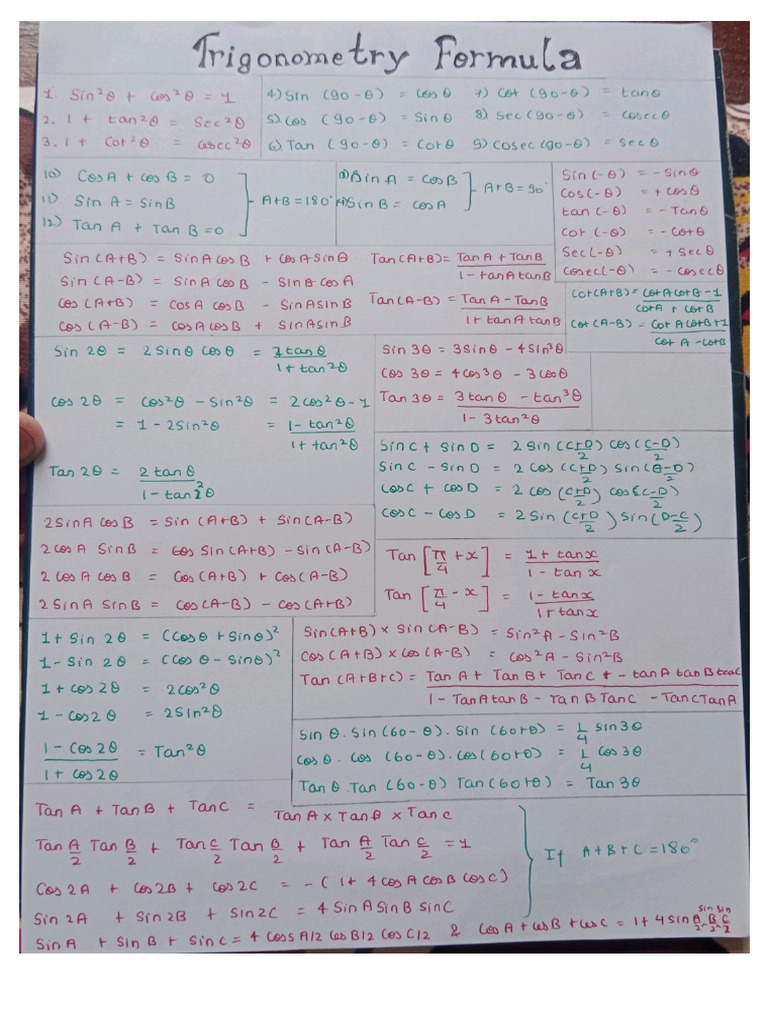 Trigonometry Formula
1. Sin²θ + cos²θ = 1
2. 1 + tan²θ = Sec²θ
3. 1 + Cot²θ = cosec²θ
4) Sin (90-θ) = cosθ
5) cos (90-θ) = Sinθ
6) Tan (90-θ) = Cotθ
7) Cot (90-θ) = tanθ
8) Sec (90-θ) = cosecθ
9) Cosec (90-θ) = Secθ
10) Cos A + cos B = 0
11) Sin A = Sin B
12) Tan A + Tan B = 0
A+B = 180°
Sin A = cos B
Sin B = cos A
A+B = 90°
Sin (-θ) = - Sinθ
Cos (-θ) = + cosθ
tan (-θ) = - Tanθ
Cot (-θ) = - Cotθ
Sec (-θ) = + Secθ
Cosec (-θ) = - cosecθ
Sin (A+B) = Sin A cos B + cos A Sin θ
Sin (A-B) = Sin A cos B - Sin θ cos A
cos (A+B) = cos A cos B - Sin A Sin B
cos (A-B) = cos A cos B + Sin A sin B
Tan (A+B) = Tan A + Tan B / 1 - tan A tan B
Tan (A-B) = Tan A - Tan B / 1 + tan A tan B
Cot (A+B) = Cot A Cot B - 1 / Cot A + Cot B
Cot (A-B) = Cot A Cot B + 1 / Cot A - Cot B
Sin 2θ = 2 Sinθ cosθ = 2 tanθ / 1 + tan²θ
cos 2θ = cos²θ - Sin²θ = 2 cos²θ - 1
= 1 - 2 Sin²θ = 1 - tan²θ / 1 + tan²θ
Tan 2θ = 2 tanθ / 1 - tan²θ
Sin 3θ = 3 Sinθ - 4 Sin³θ
Cos 3θ = 4 cos³θ - 3 cosθ
Tan 3θ = 3 tanθ - tan³θ / 1 - 3 tan²θ
Sin C + Sin D = 2 Sin (C+D)/2 cos (C-D)/2
Sin C - Sin D = 2 Cos (C+D)/2 Sin (θ-D)/2
Cos C + cos D = 2 cos (C+D)/2 cos (C-D)/2
Cos C - cos D = 2 Sin (C+D)/2 Sin (D-C)/2
2 Sin A cos B = Sin (A+B) + Sin (A-B)
2 cos A Sin B = Sin (A+B) - Sin (A-B)
2 cos A cos B = Cos (A+B) + Cos (A-B)
2 Sin A Sin B = Cos (A-B) - Cos (A+B)
Tan [π/4 + x] = 1 + tan x / 1 - tan x
Tan [π/4 - x] = 1 - tan x / 1 + tan x
1 + Sin 2θ = (Cosθ + Sinθ)²
1 - Sin 2θ = (Cosθ - Sinθ)²
1 + cos 2θ = 2 cos²θ
1 - cos 2θ = 2 Sin²θ
1 - cos 2θ / 1 + cos 2θ = Tan²θ
Sin (A+B) × Sin (A-B) = Sin²A - Sin²B
Cos (A+B) × Cos (A-B) = Cos²A - Sin²B
Tan (A+B+C) = Tan A + Tan B + Tan C + - tan A tan B tan C / 1 - Tan A tan B - Tan B Tan C - Tan C Tan A
Sin θ. Sin (60-θ). Sin (60+θ) = 1/4 sin 3θ
Cos θ. Cos (60-θ). Cos (60+θ) = 1/4 Cos 3θ
Tan θ. Tan (60-θ) Tan (60+θ) = Tan 3θ
Tan A + Tan B + Tan C = Tan A × Tan B × Tan C
Tan A/2 Tan B/2 + Tan C/2 Tan B/2 + Tan A/2 Tan C/2 = 1
Cos 2A + Cos 2B + Cos 2C = - (1 + 4 cos A cos B cos C)
Sin 2A + Sin 2B + Sin 2C = 4 Sin A Sin B Sin C
Sin A + Sin B + Sin C = 4 Coss A/2 Cos B/2 Cos C/2 & Cos A + cos B + cos C = 1 + 4 Sin A/2 sin B/2 sin C/2
If A+B+C = 180°